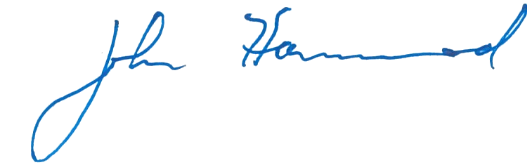 John Hammond